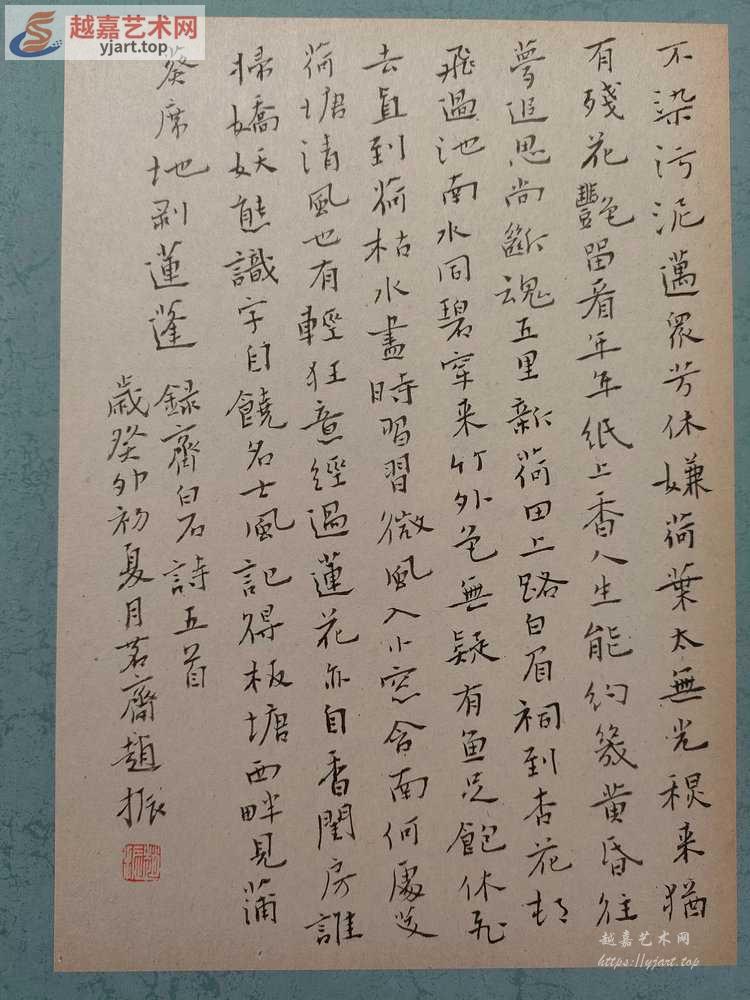 不染污泥邁眾芳休嫌荷葉太無光秋来猶
有殘花豔留看年年紙上香人生能約幾黄昏往
夢追思尚斷魂五里新荷田上路白眉祠到杏花邨
飛過池南水同碧穿来竹外色無疑有魚足飽休飛
去直到荷枯水盡時習習微風入小窓舍南何處芰
荷塘清風也有輕狂意經過蓮花亦自香閨房誰
掃嬌妖態識字自饒名士風記得板塘西畔見蒲
葵席地剥蓮蓬
録齊白石詩五首
歲癸卯初夏月茗齋趙振
越嘉艺术网
yjart.top
越嘉艺术网
https://yjart.top